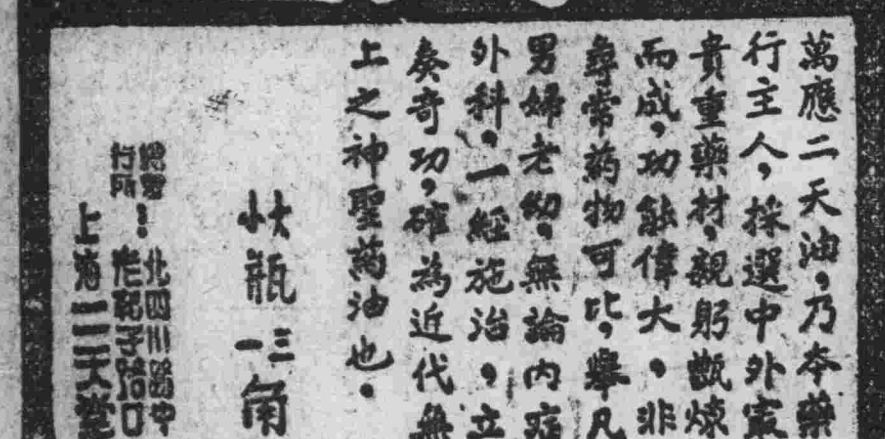 萬應二天油，乃本藥
行主人，採選中外最
貴重藥材，親躬甑煉
而成，功能偉大。非
尋常葯物可比，舉凡
男婦老幼，無論內症
外科，一經施治，立
奏奇功，確為近代無
上之神聖葯油也。
大小瓶三一角
總發行所：北四川路中
老靶子路口
上海二天堂